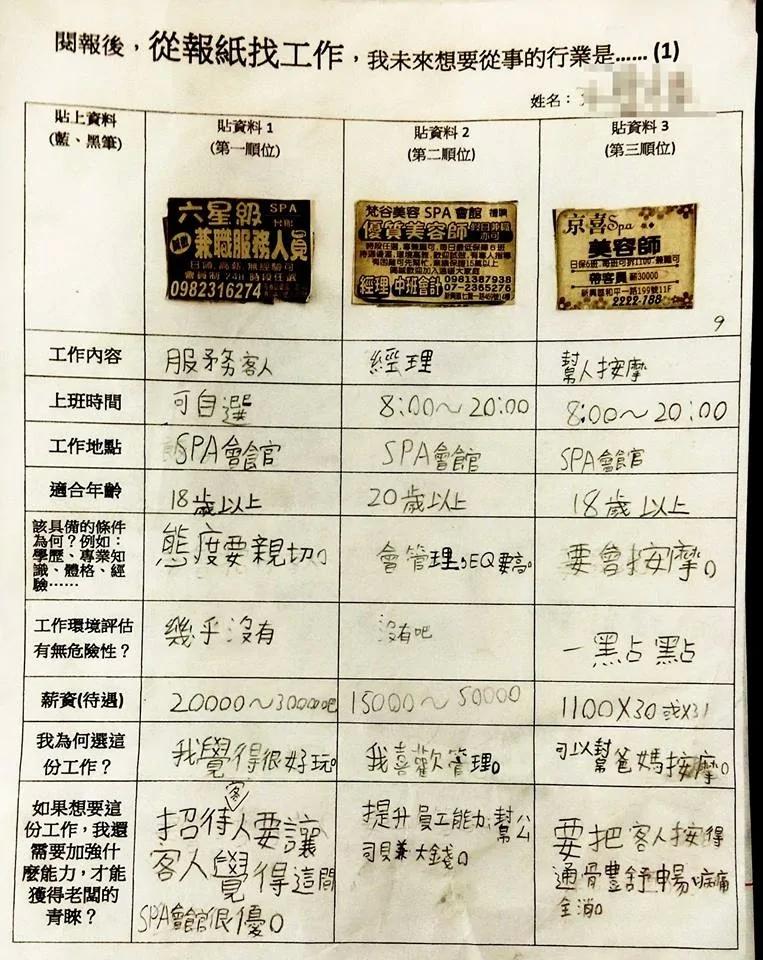 閱報後，從報紙找工作，我未來想要從事的行業是…… (1)
姓名：
貼上資料
(藍、黑筆)
貼資料 1
(第一順位)
貼資料 2
(第二順位)
貼資料 3
(第三順位)
六星級 SPA
兼職服務人員
0982316274
梵谷美容 SPA 會館
優質美容師
經理 中班會計
0981387938
07-2365276
京喜Spa
美容師
日保6班,每班可折1100,兼職可
帶客員 薪30000
新興區和平一路199號11F
2222-188
9
工作內容
服務客人
經理
幫人按摩
上班時間
可自選
8:00～20:00
8:00～20:00
工作地點
SPA會館官
SPA會館
SPA會館官
適合年齡
18歲以上
20歲以上
18歲以上
該具備的條件
為何？例如：
學歷、專業知
識、體格、經
驗……
態度要親切。
會管理,EQ要高。
要會按摩。
工作環境評估
有無危險性？
幾乎沒有
沒有吧
一點點
薪資(待遇)
20000～30000吧
15000～50000
1100X30或X31
我為何選這
份工作？
我覺得很好玩。
我喜歡管理。
可以幫爸媽按摩。
如果想要這
份工作，我還
需要加強什
麼能力，才能
獲得老闆的
青睞？
招待客人要讓
客人覺得這間
SPA會館很優。
提升員工能力,幫公
司賺大錢。
要把客人按得
通骨豐舒暢,病痛
全消。